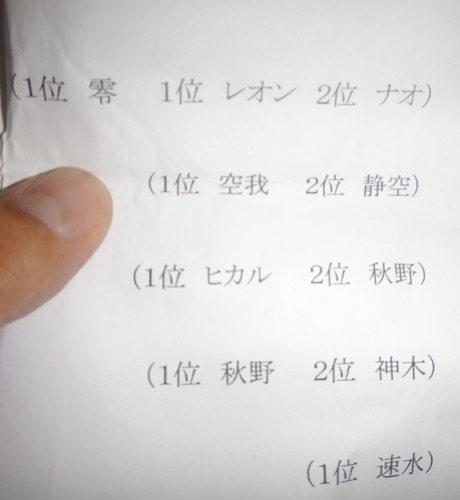 (1位 零 1位 レオン 2位 ナオ)
(1位 空我 2位 静空)
(1位 ヒカル 2位 秋野)
(1位 秋野 2位 神木)
(1位 速水)